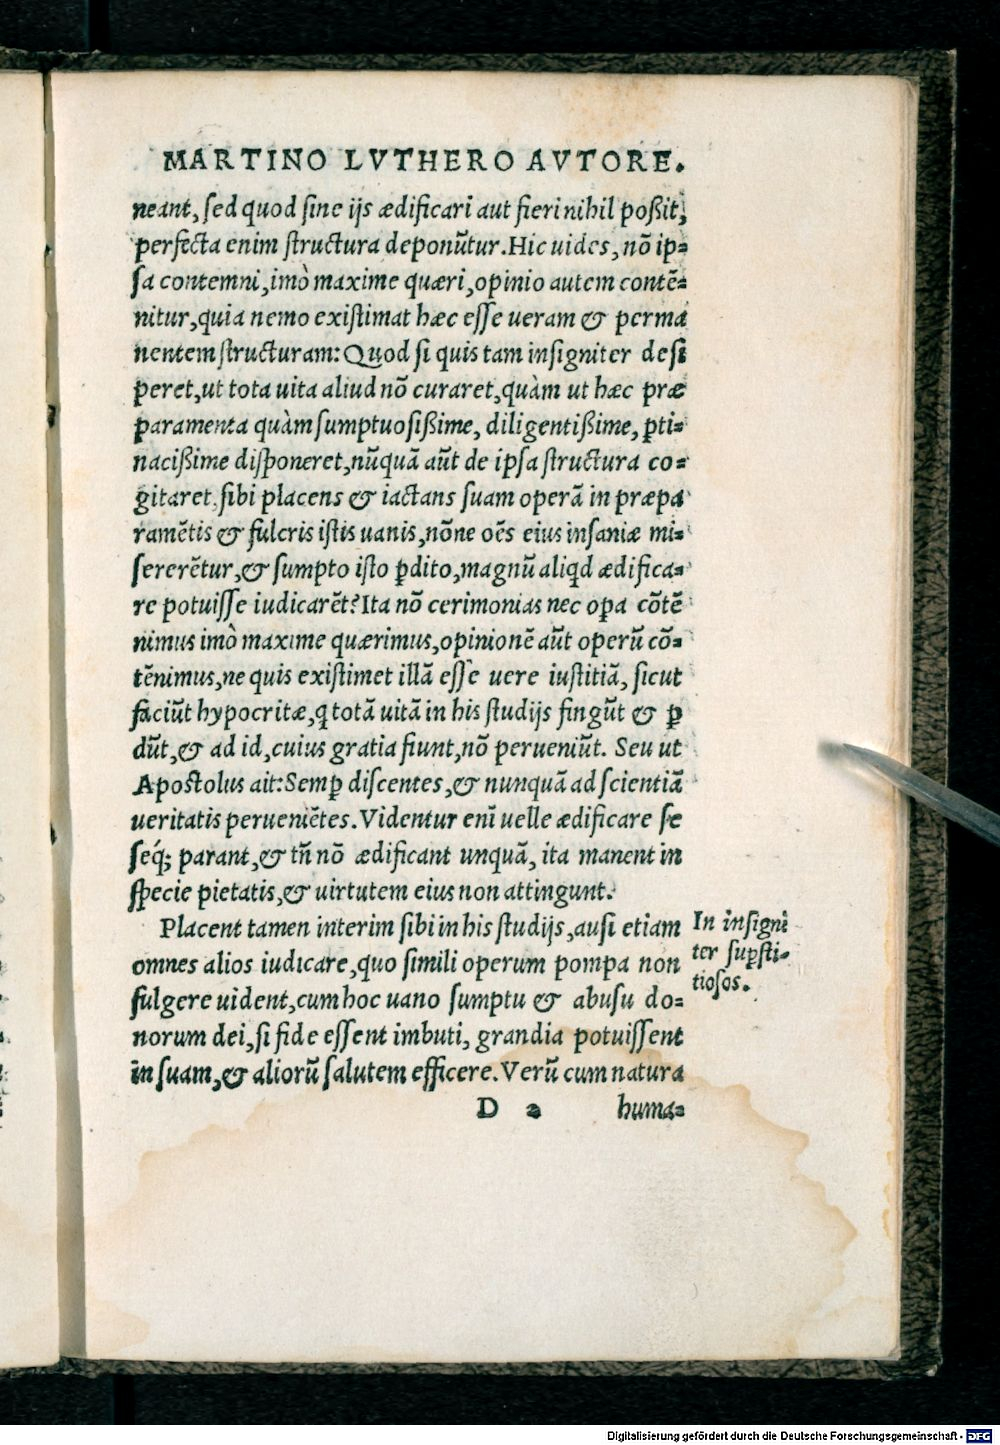 MARTINO LVTHERO AVTORE.
neant, sed quod sine ijs ædificari aut fieri nihil poßit,
perfecta enim structura deponũtur. Hic uides, nõ ip=
sa contemni, imò maxime quæri, opinio autem contẽ=
nitur, quia nemo existimat hæc esse ueram & perma
nentem structuram: Quod si quis tam insigniter desi
peret, ut tota uita aliud nõ curaret, quàm ut hæc præ
paramenta quàm sumptuosißime, diligentißime, ꝑti=
nacißime disponeret, nũquã aũt de ipsa structura co=
gitaret, sibi placens & iactans suam operã in præpa
ramẽtis & fulcris istis uanis, nõne oẽs eius insaniæ mi=
sererẽtur, & sumpto isto ꝑdito, magnũ aliqd ædifica=
re potuisse iudicarẽt? Ita nõ cerimonias nec oꝑa cõtẽ
nimus imò maxime quærimus, opinionẽ aũt operũ cõ=
tẽnimus, ne quis existimet illã esse uere iustitiã, sicut
faciũt hypocritæ, q totã uitã in his studijs fingũt & ꝑ
dũt, & ad id, cuius gratia fiunt, nõ perueniũt. Seu ut
Apostolus ait: Semꝑ discentes, & nunquã ad scientiã
ueritatis perueniẽtes. Videntur enĩ uelle ædificare se
seq́; parant, & tñ nõ ædificant unquã, ita manent in
specie pietatis, & uirtutem eius non attingunt.
Placent tamen interim sibi in his studijs, ausi etiam
omnes alios iudicare, quo simili operum pompa non
fulgere uident, cum hoc uano sumptu & abusu do=
norum dei, si fide essent imbuti, grandia potuissent
in suam, & aliorũ salutem efficere. Verũ cum natura
D 2 huma=
In insigni
ter suꝑsti=
tiosos.
Digitalisierung gefördert durch die Deutsche Forschungsgemeinschaft - DFG